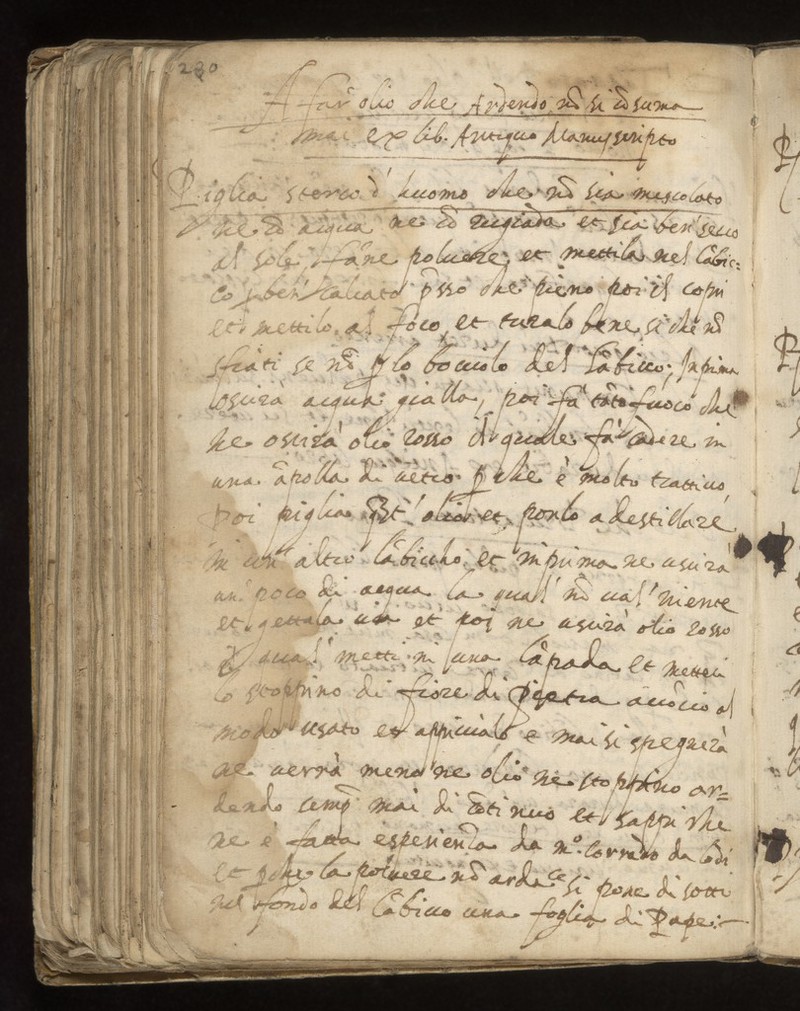 230
A far olio che Ardendo nō si cōsuma
mai ex lib. Antiquo Manusscripto
Piglia sterco d' huomo che nō sia mescolato
ne cō acqua ne cō rugiada et sia ben secco
al sole, fāne poluere, et mettila nel lābic=
co ben pieno poi il copri
et mettilo al foco, et turalo bene si che nō
sfiati se nō p lo bocciolo del lābicco; In prima
acqua gialla, poi fa tāto fuoco che
ne oscirà olio rosso il quale fa cadere in
una āpolla di uetro pche è molto trattiuo,
poi piglia qst' olio et ponlo a destillare
in un' altro lābiccho et in prima ne uscirà
un' poco di acqua la qual' nō ual' niente
et gettala uia et poi ne uscirà olio rosso
il qual' metti in una lāpada et metteci
lo stoppino di fiore di pietra acōcio al
modo usato et appiccialo e mai si spegnerà
ne uerrà meno ne olio ne stoppino ar=
dendo semp mai di cōtinuo et sappi che
ne è fatta esperienza da m.º Corrado da Lodi
et pche la poluere nō arda si pone di sotto
nel fondo del lābicco una foglia di Rape:~